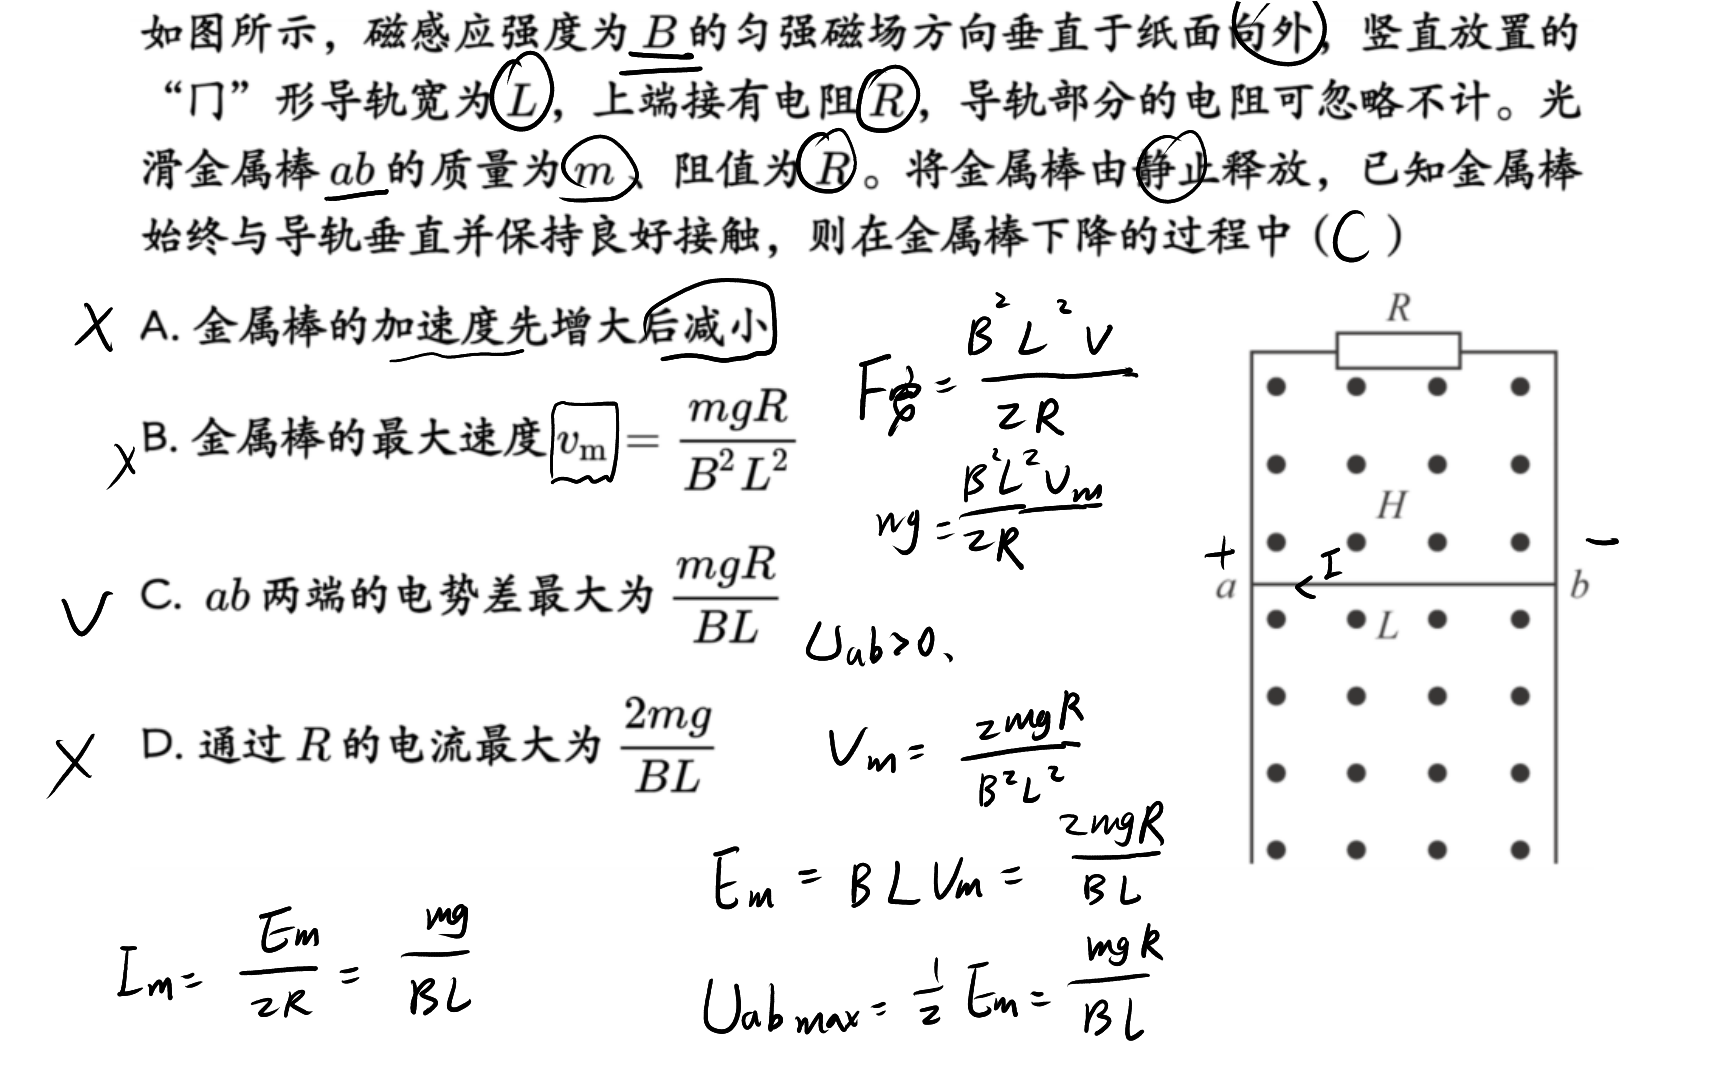 如图所示，磁感应强度为 B 的匀强磁场方向垂直于纸面向外，竖直放置的
“冂”形导轨宽为 L，上端接有电阻 R，导轨部分的电阻可忽略不计。光
滑金属棒 ab 的质量为 m、阻值为 R。将金属棒由静止释放，已知金属棒
始终与导轨垂直并保持良好接触，则在金属棒下降的过程中（C）
X A. 金属棒的加速度先增大后减小
X B. 金属棒的最大速度 v_m = mgR/B²L²
V C. ab 两端的电势差最大为 mgR/BL
X D. 通过 R 的电流最大为 2mg/BL
F安 = B²L²v/2R
mg = B²L²v_m/2R
U_ab>0、
V_m = 2mgR/B²L²
E_m = BLV_m = 2mgR/BL
U_ab max = 1/2 E_m = mgR/BL
I_m = E_m/2R = mg/BL
R
H
+ a I b −
L